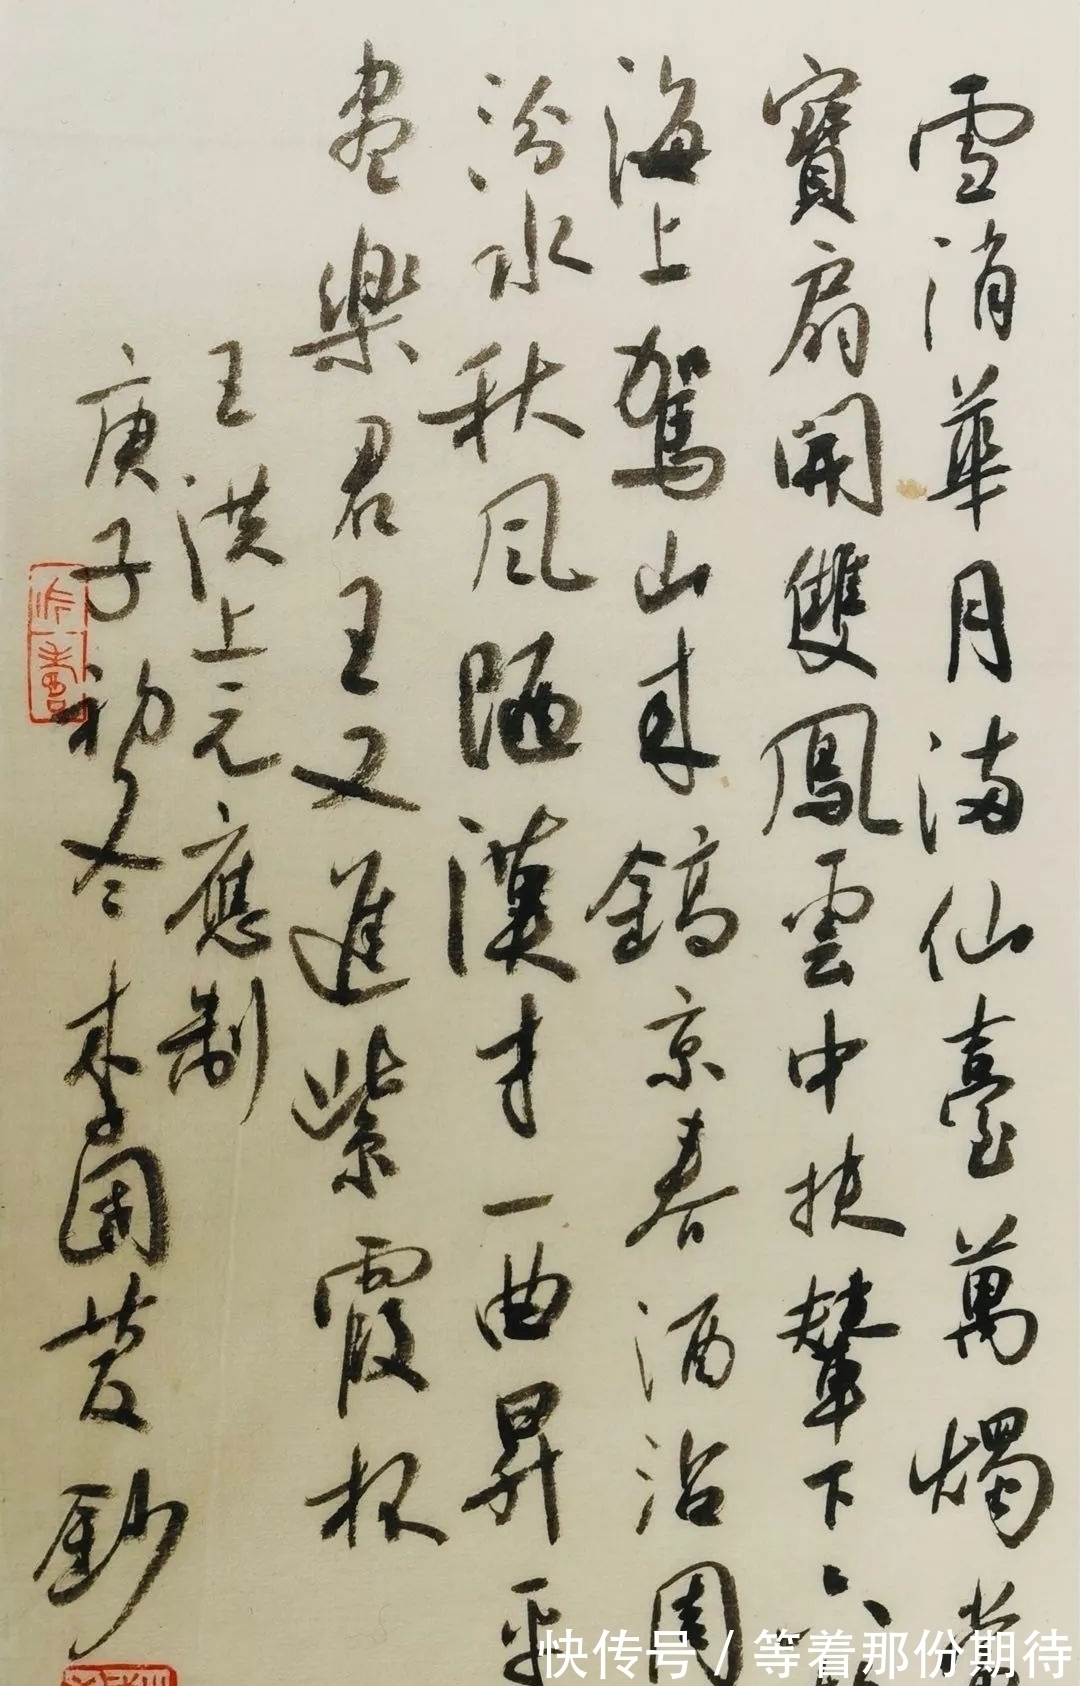 雪消華月滿仙臺萬燭當
寶扇開雙鳳雲中扶輦下六
海上駕山來鎬京春酒沾周
汾水秋風陋漢才一曲昇平
盡樂君王又進紫霞杯
王洪上元應制
庚子初冬李國英鈔
快传号/等着那份期待